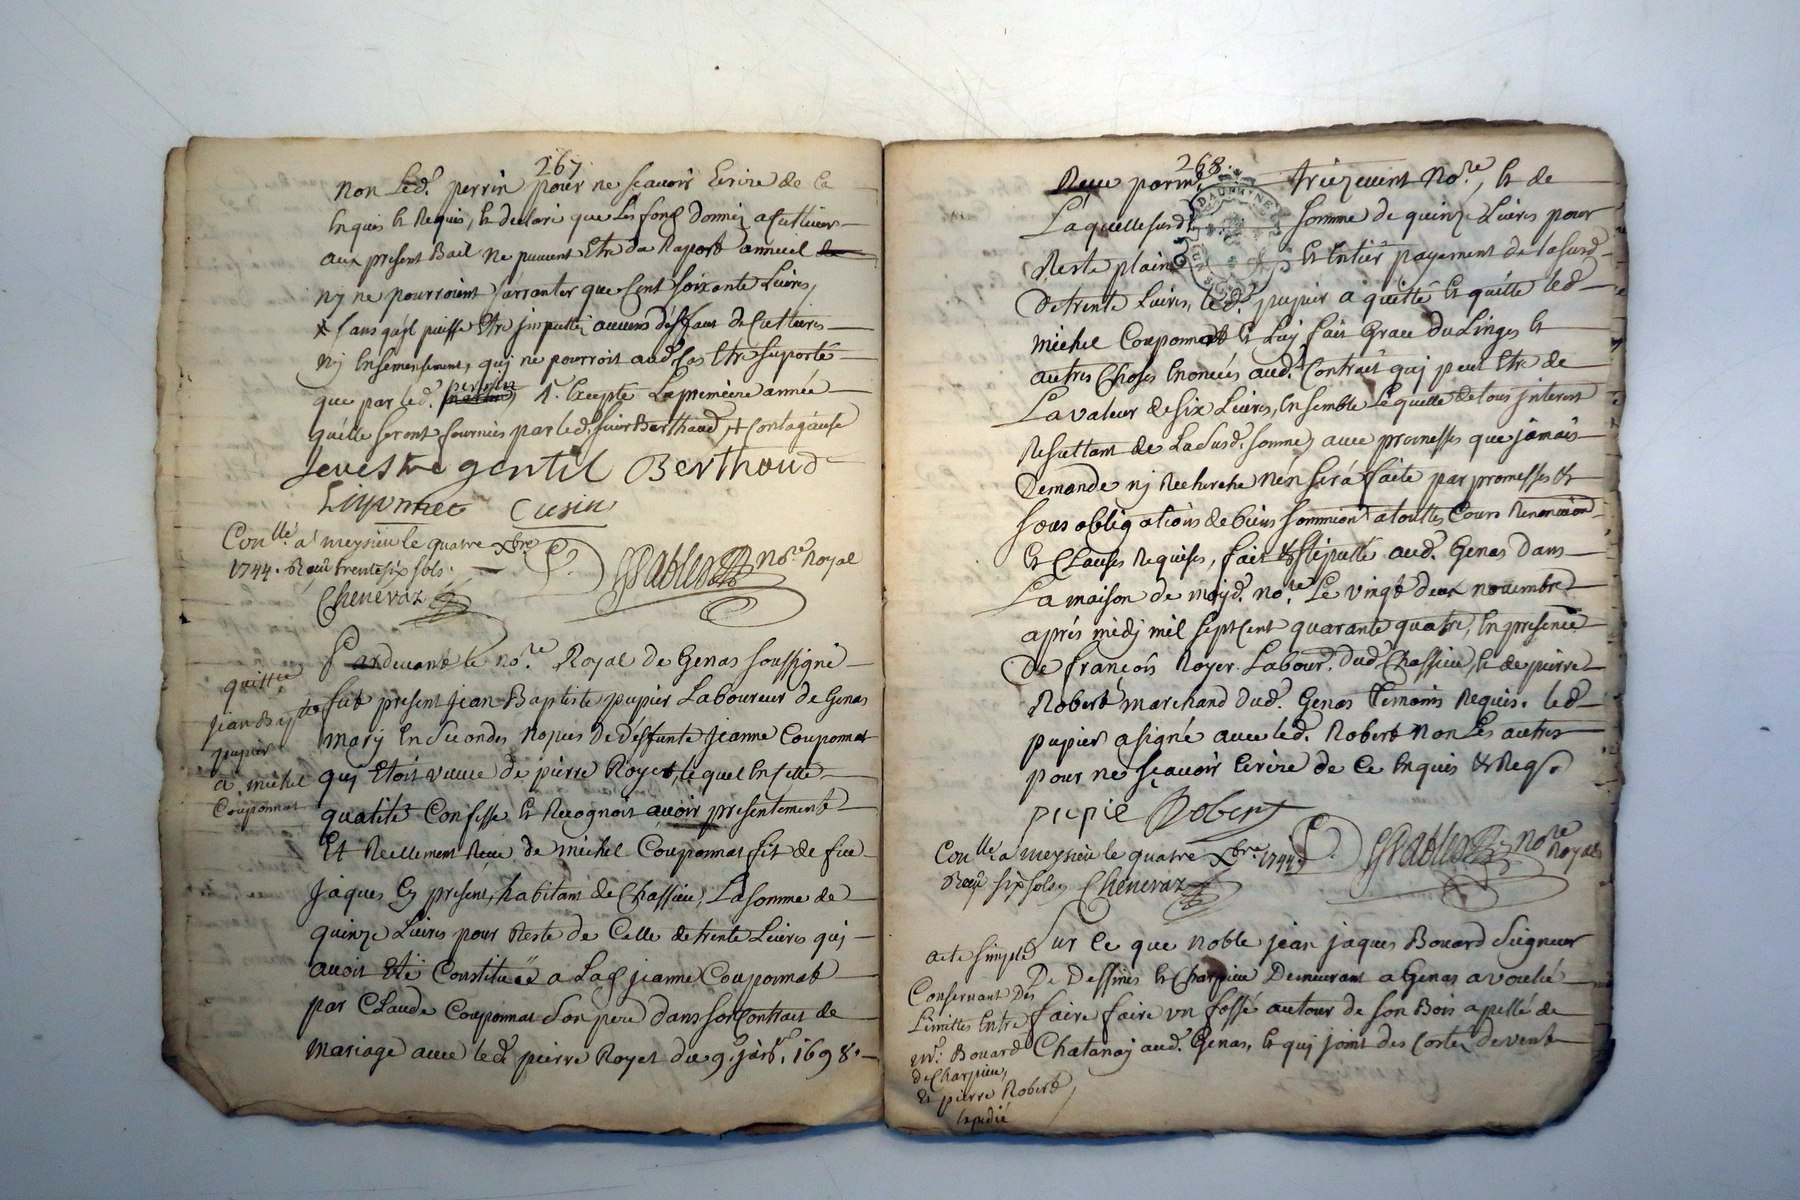 267
non led. perrin pour ne sçavoir Ecrire de ce
Enquis et Requis, et declaré que les fonds donnéz a Culture
aux present Bail ne peuvent Etre de Raport annuel
ny ne pourroient s'arranter que Cent soixante Livres,
sans qu'jl puisse Etre jmputté aucuns deffaut de Cultures
nj Ensemensement, quj ne pourroit aud. Cas Etre suporté
que par led. perrin Excepté La premiere année
qu'elle seront fournies par led. sieur Berthaud,
gentil Berthoud
Liyonnet Cusin
Conllé a meysieu le quatre Xbre
1744. Reçu trente six sols.
Chenevaz
Nore. Royal
Pardevant le nore. Royal de Genas soussigné
fut present jean Baptiste pupier Laboureur de Genas
mary En secondes nopces De deffunte jeanne Couponnat
quj Etoit veuve de pierre Royet, lequel En cette
qualité Confesse et Recognoit avoir presentement
Et Reellement Receu de michel Couponnat fils de feu
jaques Cy present, habitant de Chassieu, La somme de
quinze Livres pour Reste de Celle de trente Livres quj
avoit Eté Constituée a Lad. jeanne Couponnat
par Claude Couponnat son pere dans son Contrait de
mariage avec led. pierre Royet du 9. janv. 1698.
quittce
jean Bapte
pupier
a michel
Couponnat
268.
Receu par m. triezevent Nore, et de
Laquelle susd. somme de quinze Livres pour
Reste plain et Entier payement de la susd.
de trente Livres, led. pupier a quitté et quitte led.
michel Couponnat et Luy fait Grace du Linges et
autres Choses Enoncées aud. Contrait quj peut Etre de
La valeur de six Livres, Ensemble Le quitte de tous jnterest
Resultant de La susd. somme, avec promesses que jamais
Demande nj Recherche n'en sera faite par promesses et
sous obligations de biens soumissions a touttes Cours Renonciations
et Clauses Requises, fait et stipullé aud. Genas dans
La maison de mojd. nore. Le vingt deux novembre
aprés midj mil sept Cent quarante quatre, En presence
de françois Royer Labour. dud. Chassieu, et de pierre
Robert marchand dud. Genas temoins Requis. led.
pupier a signé avec led. Robert non Les autres
pour ne sçavoir Ecrire de Ce Enquis et Reqs.
pupié Robert
Conllé a meysieu le quatre Xbre. 1744.
Reçu six sols, Chenevaz
Nore Royal
Sur Ce que noble jean jaques Bouard Seigneur
De Dessines et Charpieu Demeurant a Genas a voulu
faire faire un fossé autour de son Bois apellé de
Chatanaj aud. Genas, et quj joint des Costes de vent
acte simple
Consernant Des
Limittes Entre
mr. Bouard
de Charpieu,
Et pierre Robert
Expedié